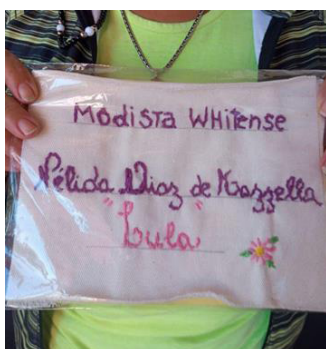 Modista Whitense
Nélida Diaz de Kazzella
"Lula"